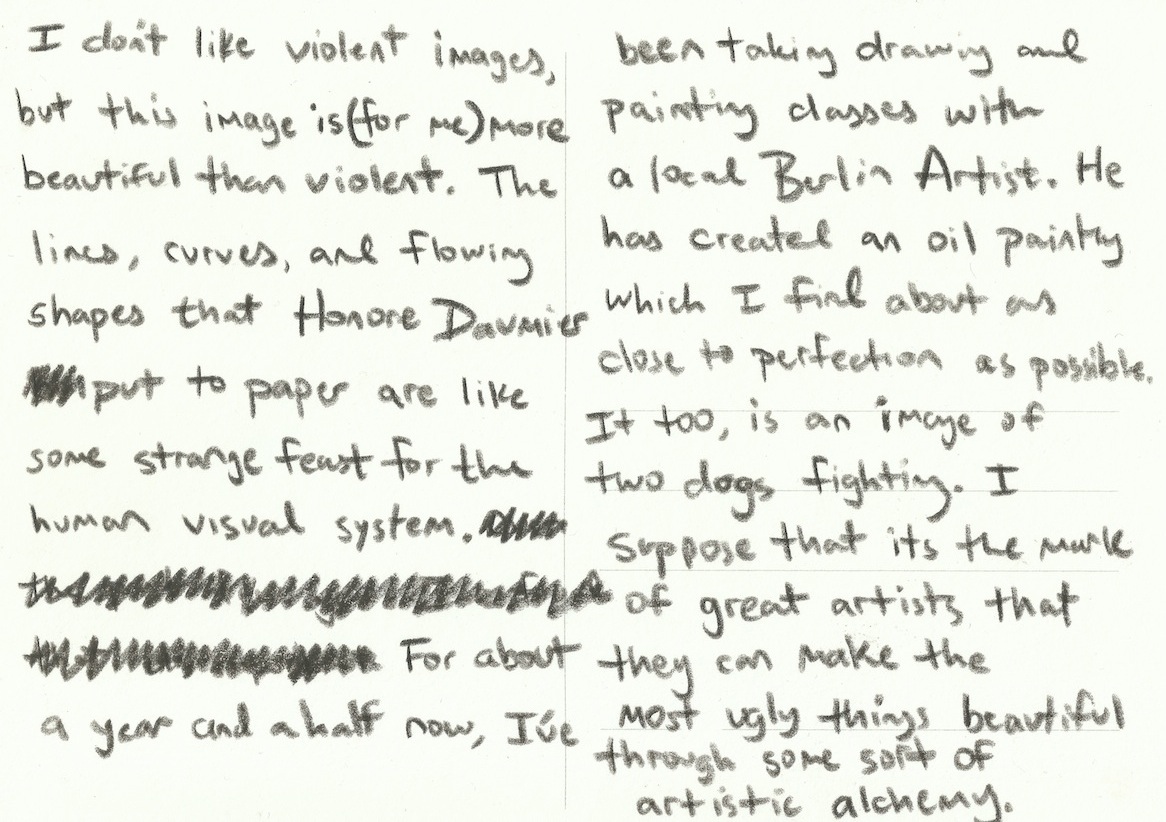 I don't like violent images,
but this image is (for me) more
beautiful than violent. The
lines, curves, and flowing
shapes that Honore Daumier
put to paper are like
some strange feast for the
human visual system.
For about
a year and a half now, I've
been taking drawing and
painting classes with
a local Berlin Artist. He
has created an oil painting
which I find about as
close to perfection as possible.
It too, is an image of
two dogs fighting. I
suppose that its the mark
of great artists that
they can make the
most ugly things beautiful
through some sort of
artistic alchemy.